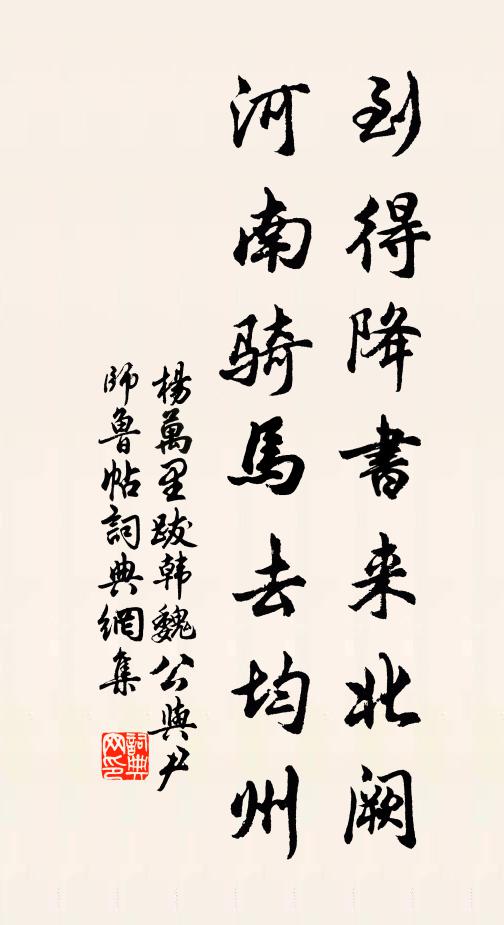 到得降書来北阙
河南骑馬去均州
楊萬里跋韩魏公與尹
師魯帖詞典網集
詞典
网印